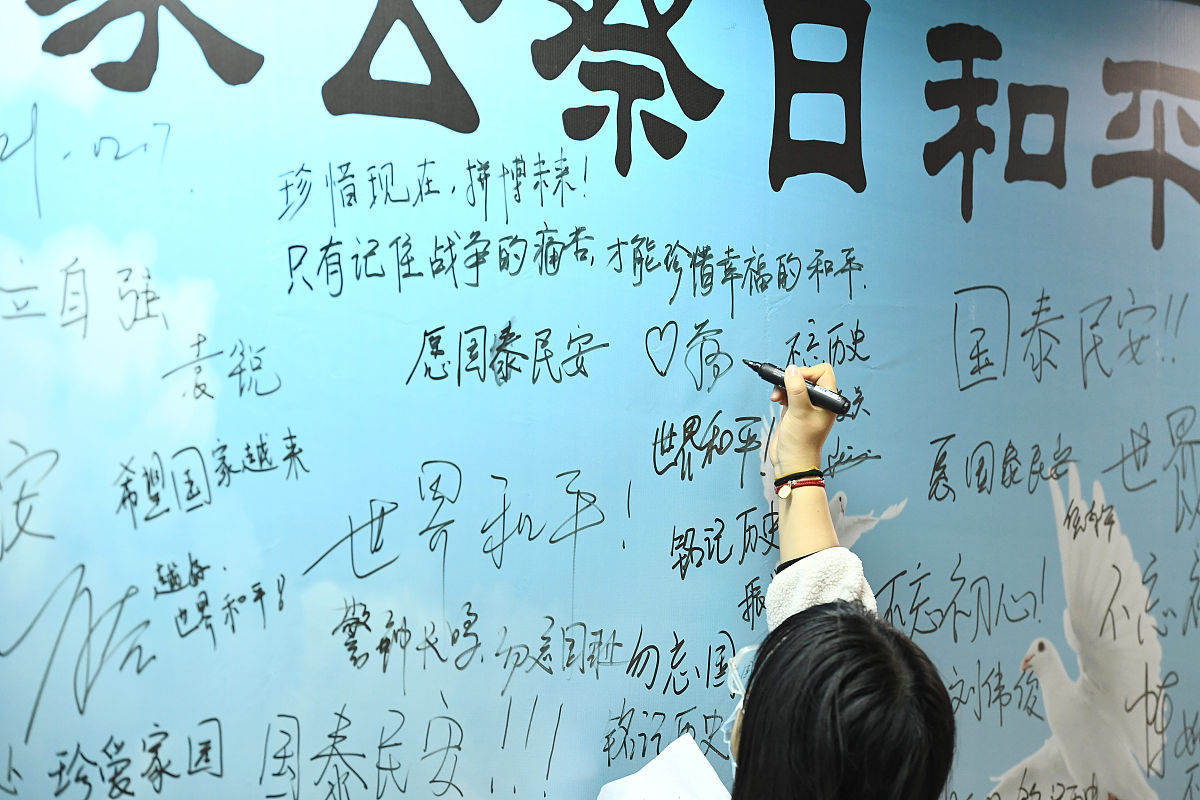 家公祭日和平
21.12.7
珍惜现在，拼博未来！
只有记住战争的痛苦，才能珍惜幸福的和平.
立自强
愿国泰民安
不忘历史
国泰民安!!
袁锐
世界和平！
希望国家越来
愿国泰民安
世界
安
世界和平！
铭记历史
越好.
世界和平!
振
不忘初心!
不忘
警钟长鸣，勿忘国耻
勿忘国
刘伟俊
铭记历史
珍爱家园
国泰民安!!!